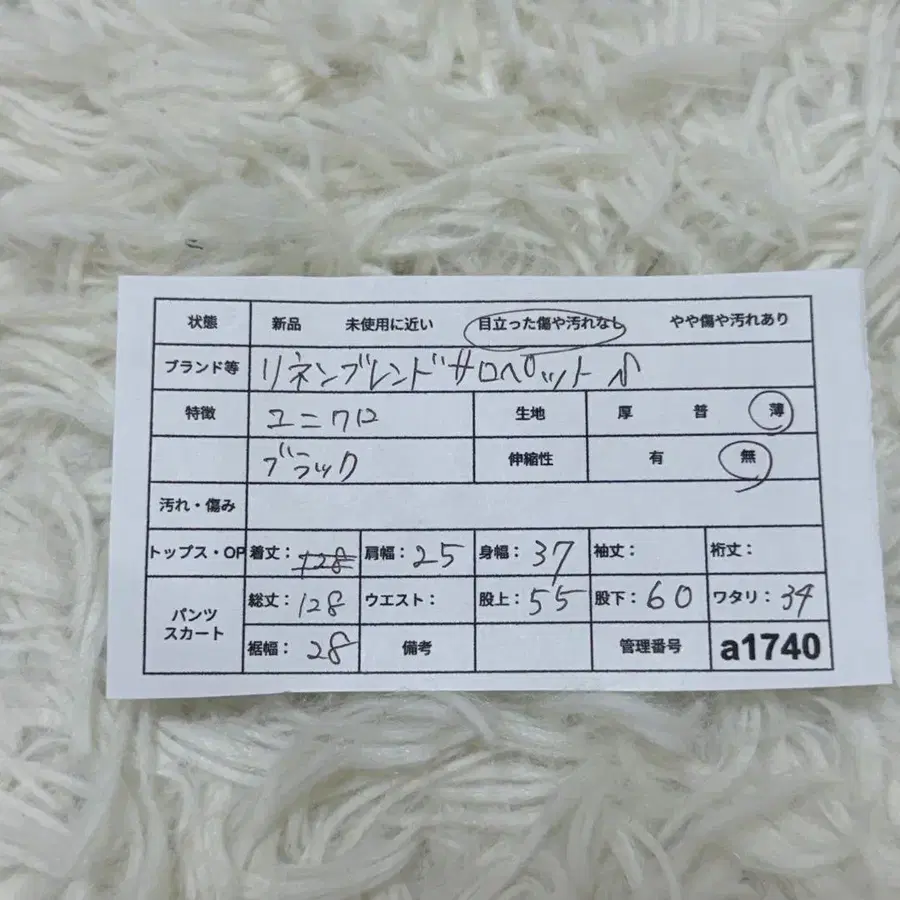 状態 新品 未使用に近い 目立った傷や汚れなし やや傷や汚れあり
ブランド等 リネンブレンドサロペット
特徴 ユニクロ 生地 厚 普 薄
ブラック 伸縮性 有 無
汚れ・傷み
トップス・OP 着丈: 128 肩幅: 25 身幅: 37 袖丈: 裄丈:
パンツ スカート 総丈: 128 ウエスト: 股上: 55 股下: 60 ワタリ: 34
裾幅: 28 備考 管理番号 a1740